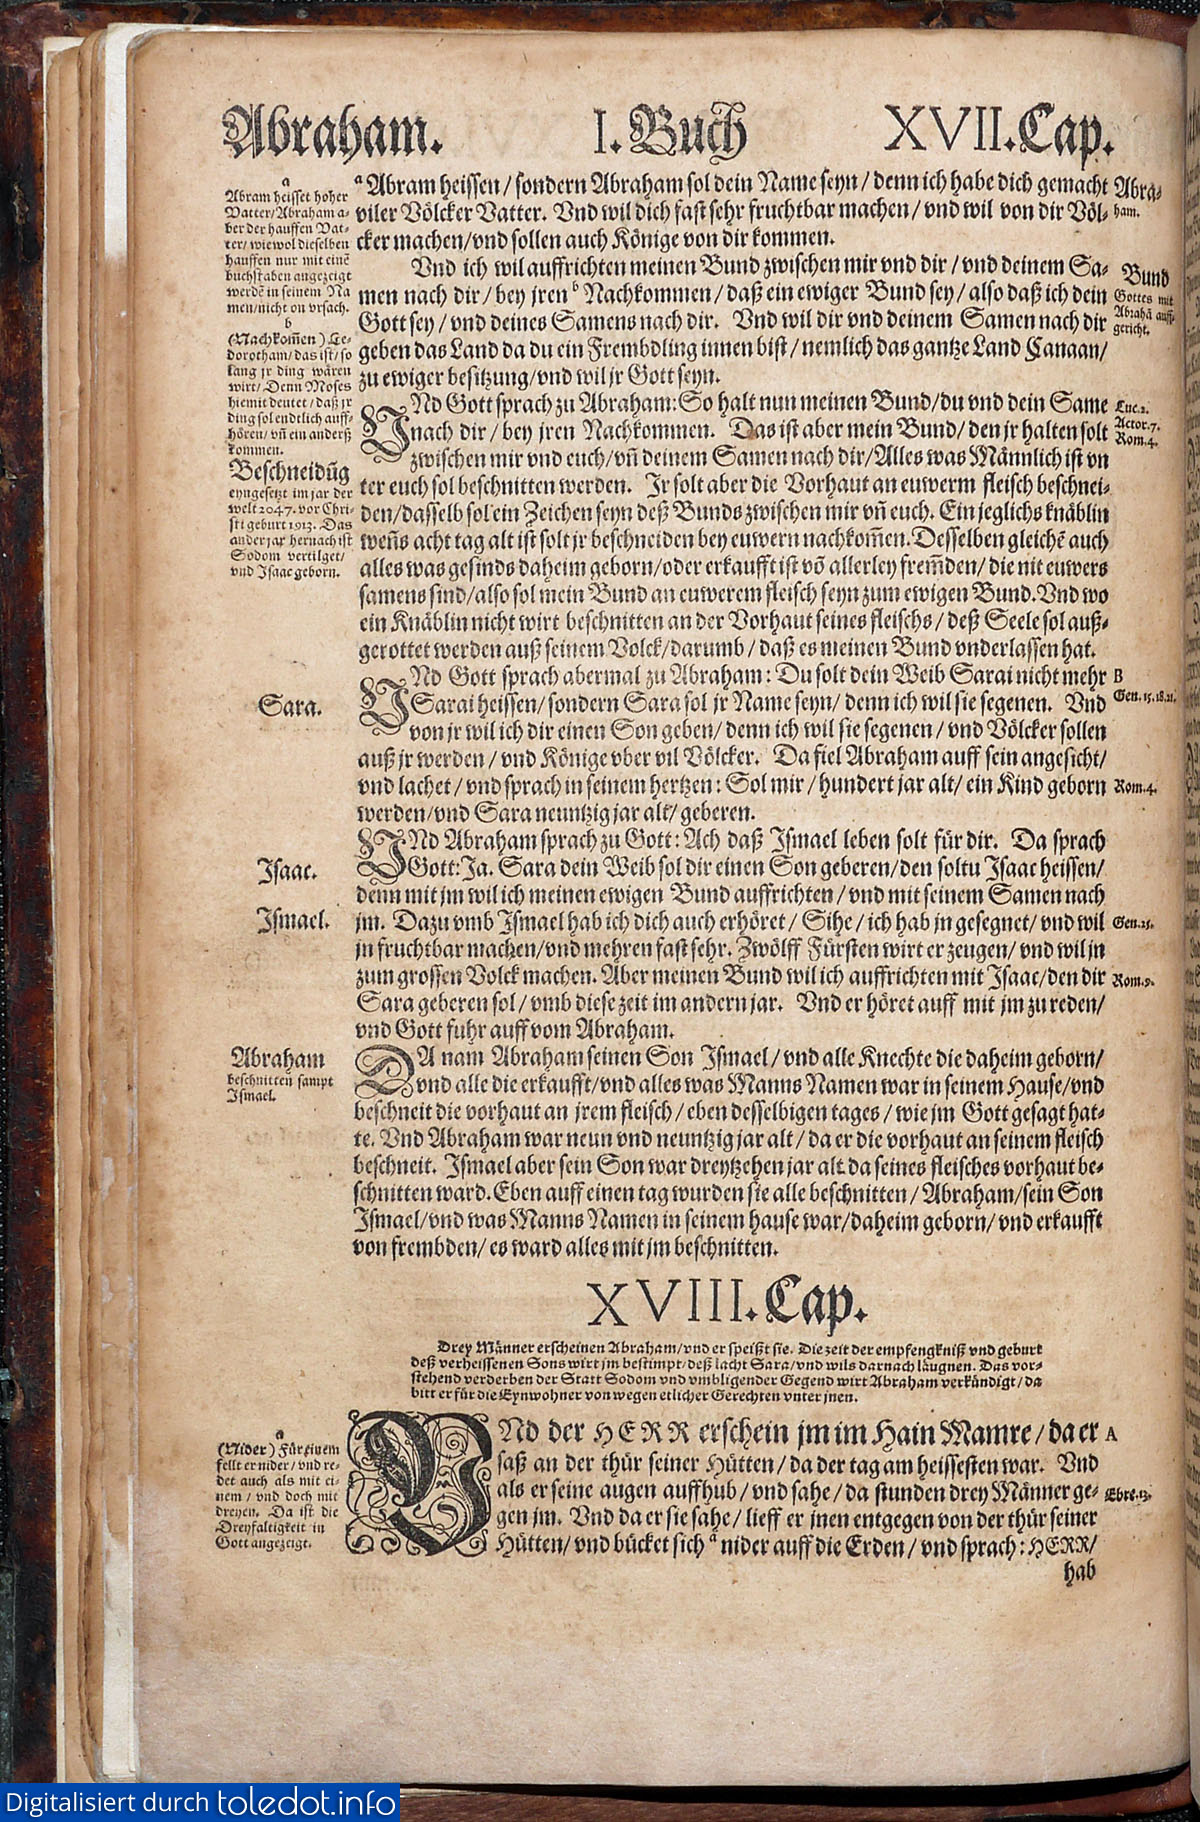 Abraham. I. Buch XVII. Cap.
a
Abram heisset hoher
Vatter/Abraham a-
ber der hauffen Vat-
ter/wiewol dieselben
hauffen nur mit einē
buchstaben angezeigt
werdē in seinem Na
men/nicht on vrsach.
b
(Nachkom̄en) Le-
dorotham/das ist/so
lang jr ding wären
wirt/Denn Moses
hiemit deutet/daß jr
ding sol endtlich auff-
hören/vñ ein anderß
kommen.
Beschneidūg
eyngesetzt im jar der
welt 2047. vor Chri-
sti geburt 1913. Das
ander jar hernach ist
Sodom vertilget/
vnd Isaac geborn.
a Abram heissen/sondern Abraham sol dein Name seyn/denn ich habe dich gemacht
viler Völcker Vatter. Vnd wil dich fast sehr fruchtbar machen/vnd wil von dir Völ-
cker machen/vnd sollen auch Könige von dir kommen.
Vnd ich wil auffrichten meinen Bund zwischen mir vnd dir/vnd deinem Sa-
men nach dir/bey jren b Nachkommen/daß ein ewiger Bund sey/also daß ich dein
Gott sey/vnd deines Samens nach dir. Vnd wil dir vnd deinem Samen nach dir
geben das Land da du ein Frembdling innen bist/nemlich das gantze Land Canaan/
zu ewiger besitzung/vnd wil jr Gott seyn.
Abra-
ham.
Bund
Gottes mit
Abrahā auff-
gericht.
VNd Gott sprach zu Abraham: So halt nun meinen Bund/du vnd dein Same
nach dir/bey jren Nachkommen. Das ist aber mein Bund/den jr halten solt
zwischen mir vnd euch/vñ deinem Samen nach dir/Alles was Männlich ist vn
ter euch sol beschnitten werden. Jr solt aber die Vorhaut an euwerm fleisch beschnei-
den/dasselb sol ein Zeichen seyn deß Bunds zwischen mir vñ euch. Ein jeglichs knäblin
weñs acht tag alt ist solt jr beschneiden bey euwern nachkom̄en. Desselben gleichē auch
alles was gesinds daheim geborn/oder erkaufft ist vō allerley frem̄den/die nit euwers
samens sind/also sol mein Bund an euwerem fleisch seyn zum ewigen Bund. Vnd wo
ein Knäblin nicht wirt beschnitten an der Vorhaut seines fleischs/deß Seele sol auß-
gerottet werden auß seinem Volck/darumb/daß es meinen Bund vnderlassen hat.
Luc.2.
Actor.7.
Rom.4.
Sara.
VNd Gott sprach abermal zu Abraham: Du solt dein Weib Sarai nicht mehr
Sarai heissen/sondern Sara sol jr Name seyn/denn ich wil sie segenen. Vnd
von jr wil ich dir einen Son geben/denn ich wil sie segenen/vnd Völcker sollen
auß jr werden/vnd Könige vber vil Völcker. Da fiel Abraham auff sein angesicht/
vnd lachet/vnd sprach in seinem hertzen: Sol mir/hundert jar alt/ein Kind geborn
werden/vnd Sara neuntzig jar alt/geberen.
B
Gen.15.18.21.
Rom.4.
Isaac.
Ismael.
VNd Abraham sprach zu Gott: Ach daß Ismael leben solt für dir. Da sprach
Gott: Ja. Sara dein Weib sol dir einen Son geberen/den soltu Isaac heissen/
denn mit jm wil ich meinen ewigen Bund auffrichten/vnd mit seinem Samen nach
jm. Dazu vmb Ismael hab ich dich auch erhöret/Sihe/ich hab jn gesegnet/vnd wil
jn fruchtbar machen/vnd mehren fast sehr. Zwölff Fürsten wirt er zeugen/vnd wil jn
zum grossen Volck machen. Aber meinen Bund wil ich auffrichten mit Isaac/den dir
Sara geberen sol/vmb diese zeit im andern jar. Vnd er höret auff mit jm zu reden/
vnd Gott fuhr auff vom Abraham.
Gen.25.
Rom.9.
Abraham
beschnitten sampt
Ismael.
DA nam Abraham seinen Son Ismael/vnd alle Knechte die daheim geborn/
vnd alle die erkaufft/vnd alles was Manns Namen war in seinem Hause/vnd
beschneit die vorhaut an jrem fleisch/eben desselbigen tages/wie jm Gott gesagt hat-
te. Vnd Abraham war neun vnd neuntzig jar alt/da er die vorhaut an seinem fleisch
beschneit. Ismael aber sein Son war dreytzehen jar alt da seines fleisches vorhaut be-
schnitten ward. Eben auff einen tag wurden sie alle beschnitten/Abraham/sein Son
Ismael/vnd was Manns Namen in seinem hause war/daheim geborn/vnd erkaufft
von frembden/es ward alles mit jm beschnitten.
XVIII. Cap.
Drey Männer erscheinen Abraham/vnd er speißt sie. Die zeit der empfengkniß vnd geburt
deß verheissenen Sons wirt jm bestimpt/deß lacht Sara/vnd wils darnach läugnen. Das vor-
stehend verderben der Statt Sodom vnd vmbligender Gegend wirt Abraham verkündigt/da
bitt er für die Eynwohner von wegen etlicher Gerechten vnter jnen.
a
(Nider) Für einem
fellt er nider/vnd re-
det auch als mit ei-
nem/vnd doch mit
dreyen. Da ist die
Dreyfaltigkeit in
Gott angezeigt.
VNd der HERR erschein jm im Hain Mamre/da er
saß an der thür seiner Hütten/da der tag am heissesten war. Vnd
als er seine augen auffhub/vnd sahe/da stunden drey Männer ge-
gen jm. Vnd da er sie sahe/lieff er jnen entgegen von der thür seiner
Hütten/vnd bücket sich a nider auff die Erden/vnd sprach: HERR/
hab
A
Ebre.13.
Digitalisiert durch toledot.info